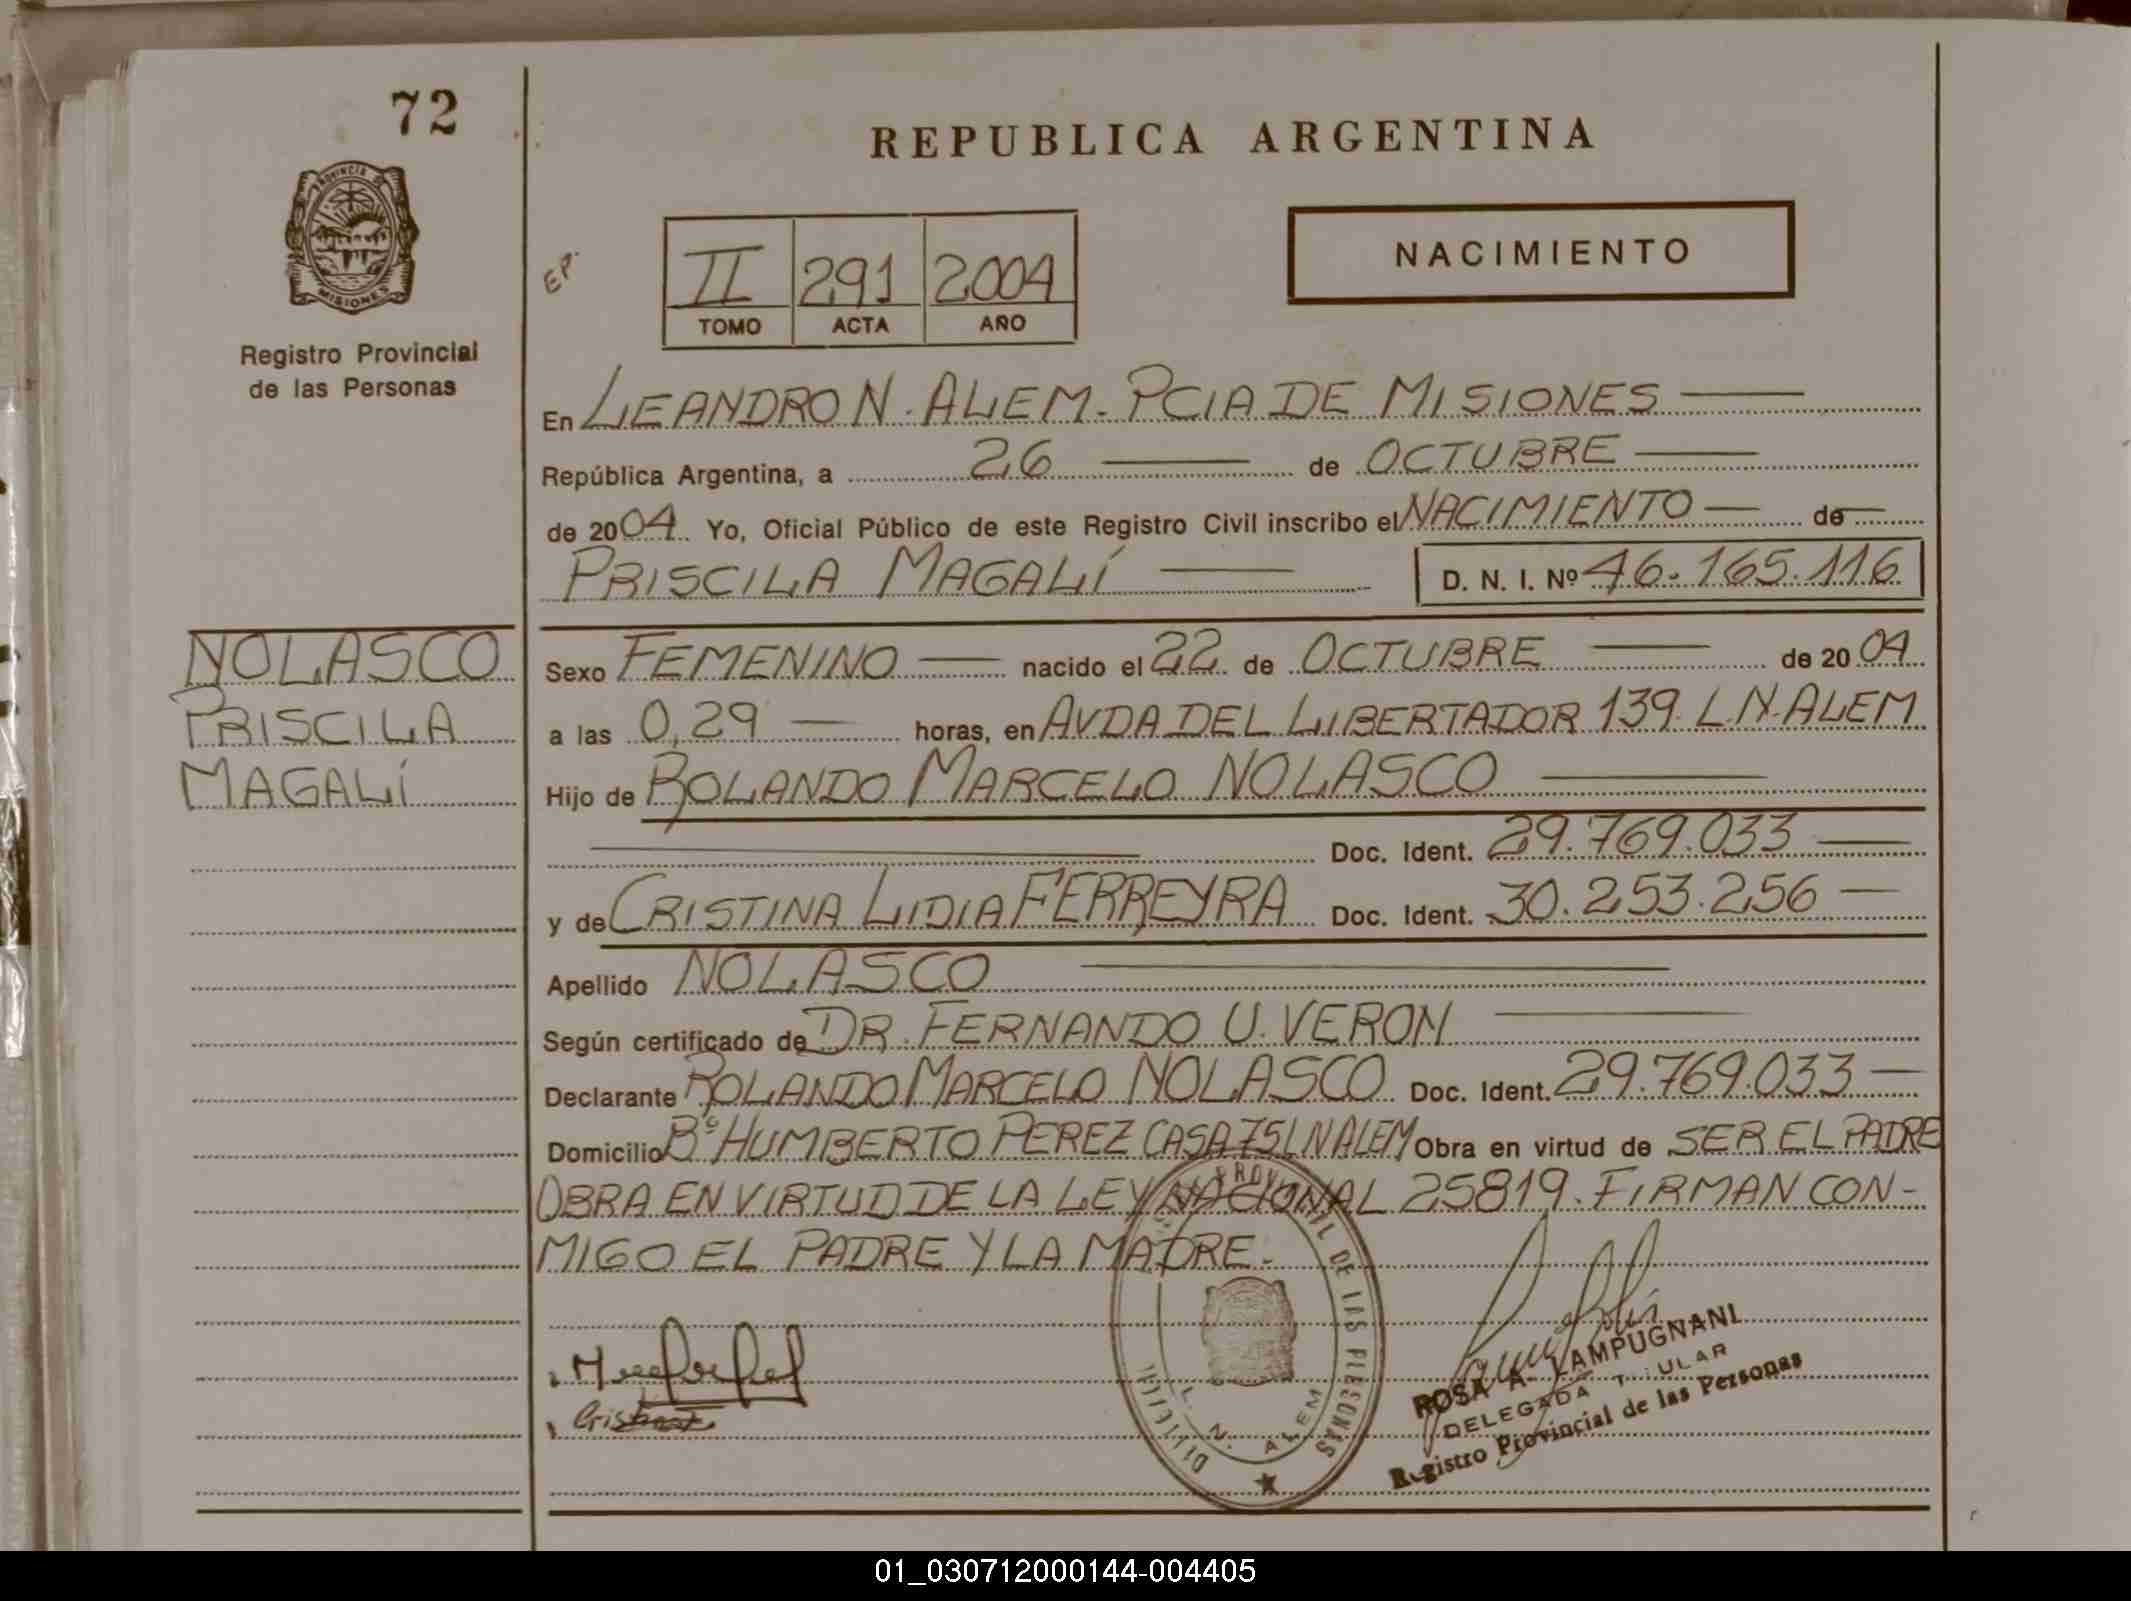 72
PROVINCIA DE
MISIONES
Registro Provincial
de las Personas
REPUBLICA ARGENTINA
NACIMIENTO
EP.
II 291 2004
TOMO ACTA AÑO
En LEANDRO N. ALEM. PCIA DE MISIONES
República Argentina, a 26 de OCTUBRE
de 2004. Yo, Oficial Público de este Registro Civil inscribo el NACIMIENTO de
PRISCILA MAGALÍ D. N. I. Nº 46.165.116
NOLASCO
PRISCILA
MAGALÍ
Sexo FEMENINO nacido el 22 de OCTUBRE de 2004
a las 0,29 horas, en AVDA DEL LIBERTADOR 139. L.N.ALEM
Hijo de ROLANDO MARCELO NOLASCO
Doc. Ident. 29.769.033
y de CRISTINA LIDIA FERREYRA Doc. Ident. 30.253.256
Apellido NOLASCO
Según certificado de DR. FERNANDO U. VERON
Declarante ROLANDO MARCELO NOLASCO Doc. Ident. 29.769.033
Domicilio Bº HUMBERTO PEREZ CASA 75 L N ALEM Obra en virtud de SER EL PADRE
OBRA EN VIRTUD DE LA LEY NACIONAL 25819. FIRMAN CON-
MIGO EL PADRE Y LA MADRE.
DE LAS PERSONAS
L. N. ALEM
ROSA A. LAMPUGNANI
DELEGADA TITULAR
Registro Provincial de las Personas
01_030712000144-004405